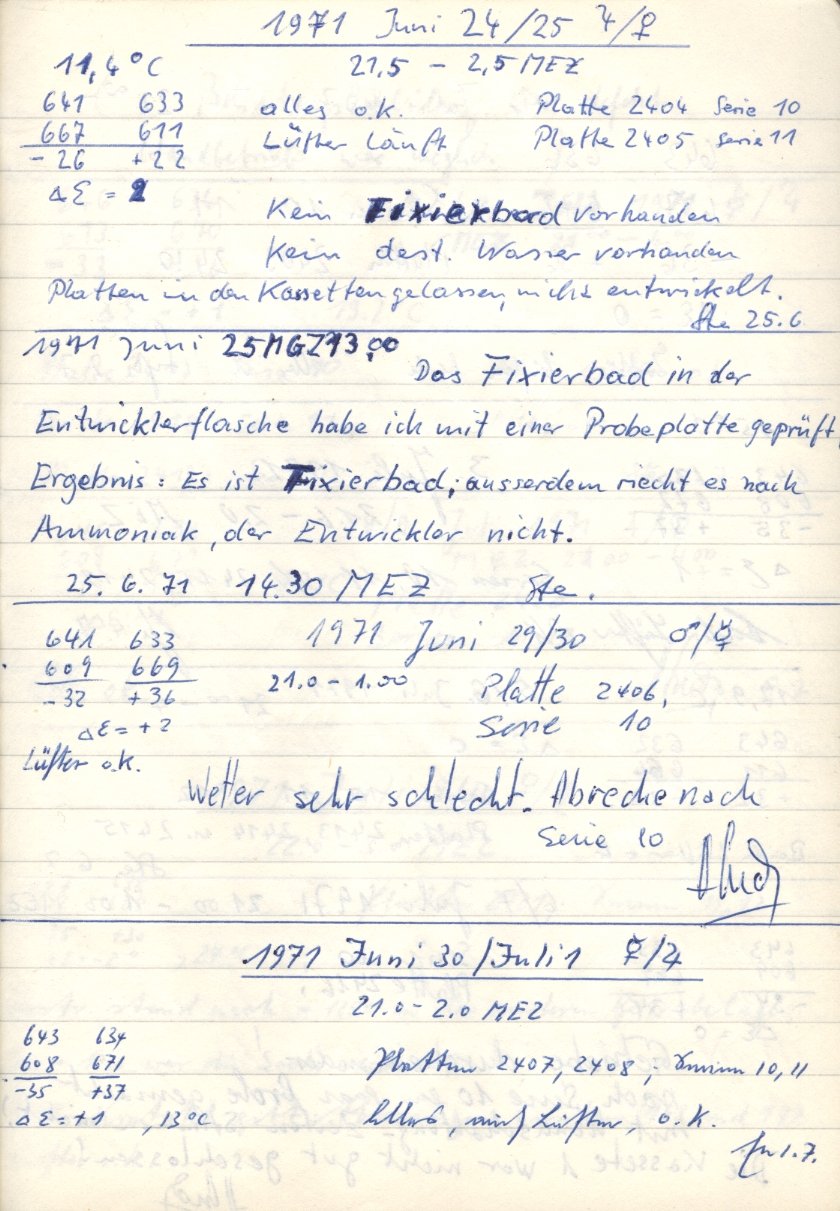 1971 Juni 24/25 ♃/♀
11,4°C 21,5 – 2,5 MEZ
641 633 alles o.k. Platte 2404 Serie 10
667 611 Lüfter läuft Platte 2405 Serie 11
- 26 + 22
Δ Σ = 2
Kein Fixierbad vorhanden
Kein dest. Wasser vorhanden
Platten in den Kassetten gelassen, nichs entwickelt.
Ste 25.6
1971 Juni 25 MGZ 13.00
Das Fixierbad in der
Entwicklerflasche habe ich mit einer Probeplatte geprüft,
Ergebnis: Es ist Fixierbad; ausserdem riecht es nach
Ammoniak, der Entwickler nicht.
25. 6. 71 14.30 MEZ Ste.
641 633 1971 Juni 29/30 ♂/☿
609 669 21.0 – 1.00 Platte 2406,
- 32 + 36 Serie 10
Δ Σ = + 2
Lüfter o.k.
Wetter sehr schlecht. Abreche nach
Serie 10
1971 Juni 30/Juli 1 ☿/♃
21.0 – 2.0 MEZ
643 634
608 671 Platten 2407, 2408; Serien 10, 11
-35 +37
Δ Σ = + 1 , 13°C Alles auch Lüfter, o.k.
1.7.